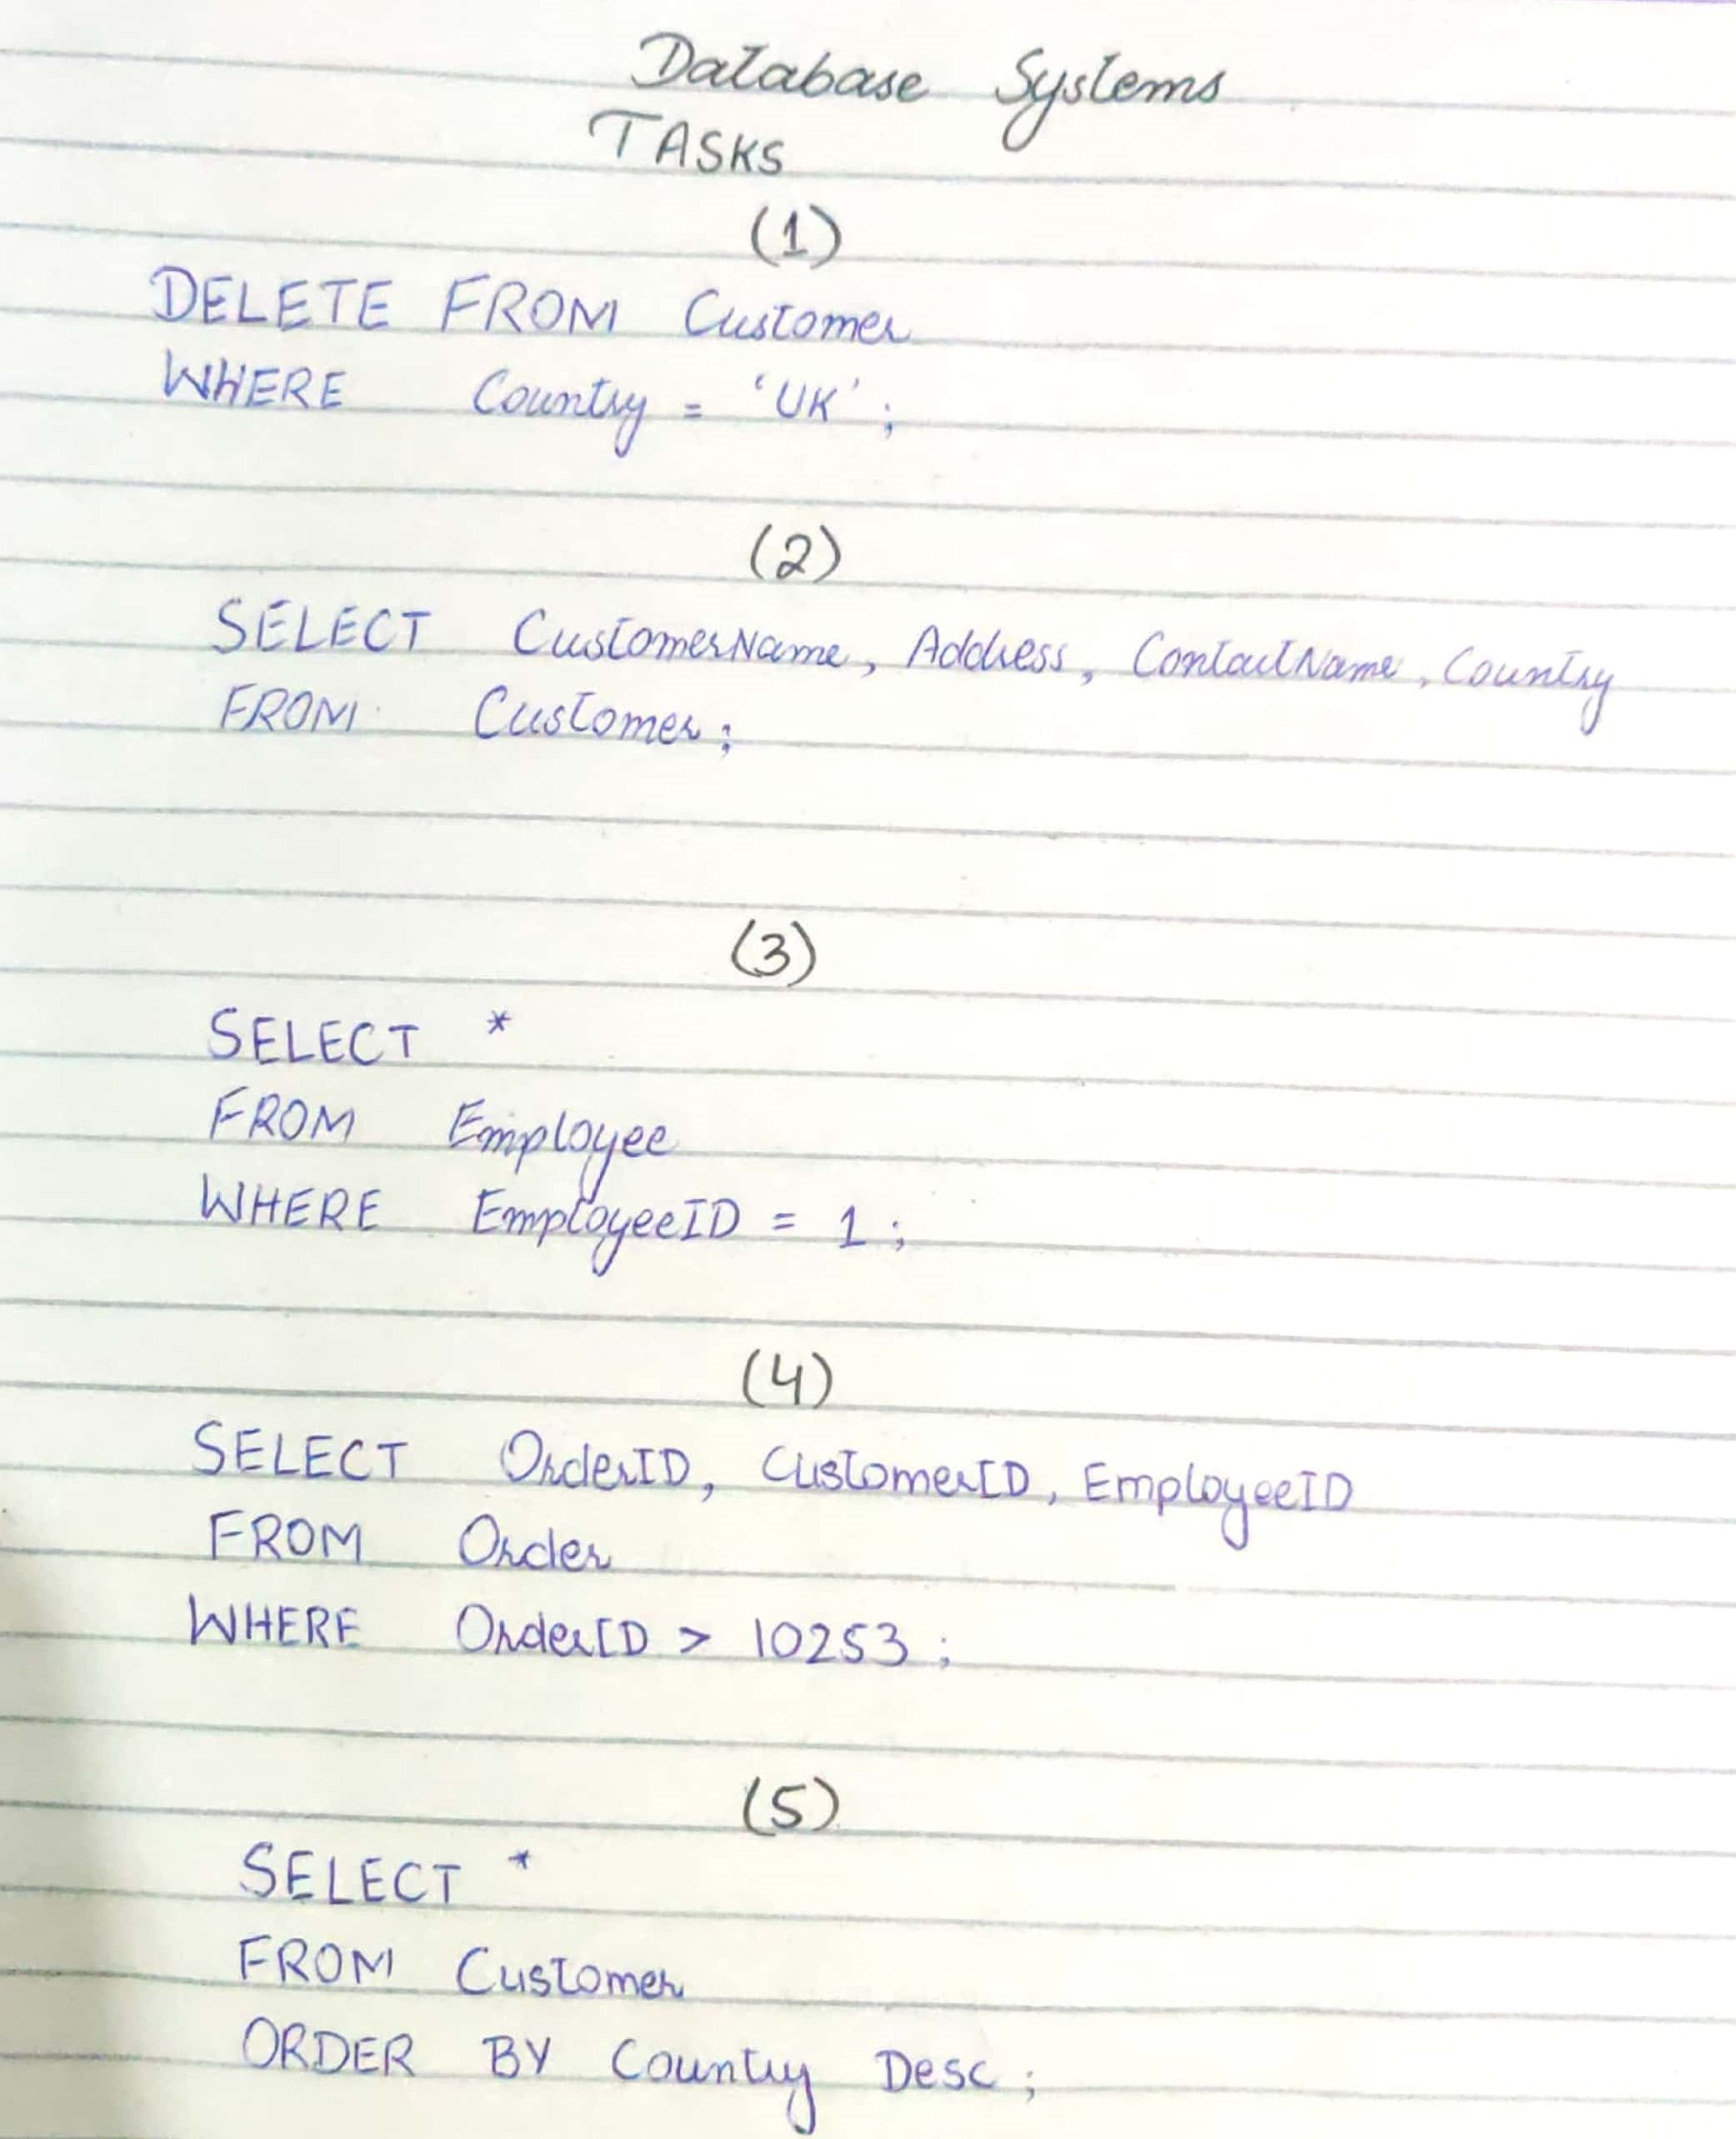 Database Systems
TASKS
(1)
DELETE FROM Customer
WHERE Country = 'UK' ;
(2)
SELECT CustomerName, Address, ContactName, Country
FROM Customer;
(3)
SELECT *
FROM Employee
WHERE EmployeeID = 1 ;
(4)
SELECT OrderID, CustomerID, EmployeeID
FROM Order
WHERE OrderID > 10253 ;
(5)
SELECT *
FROM Customer
ORDER BY Country Desc ;